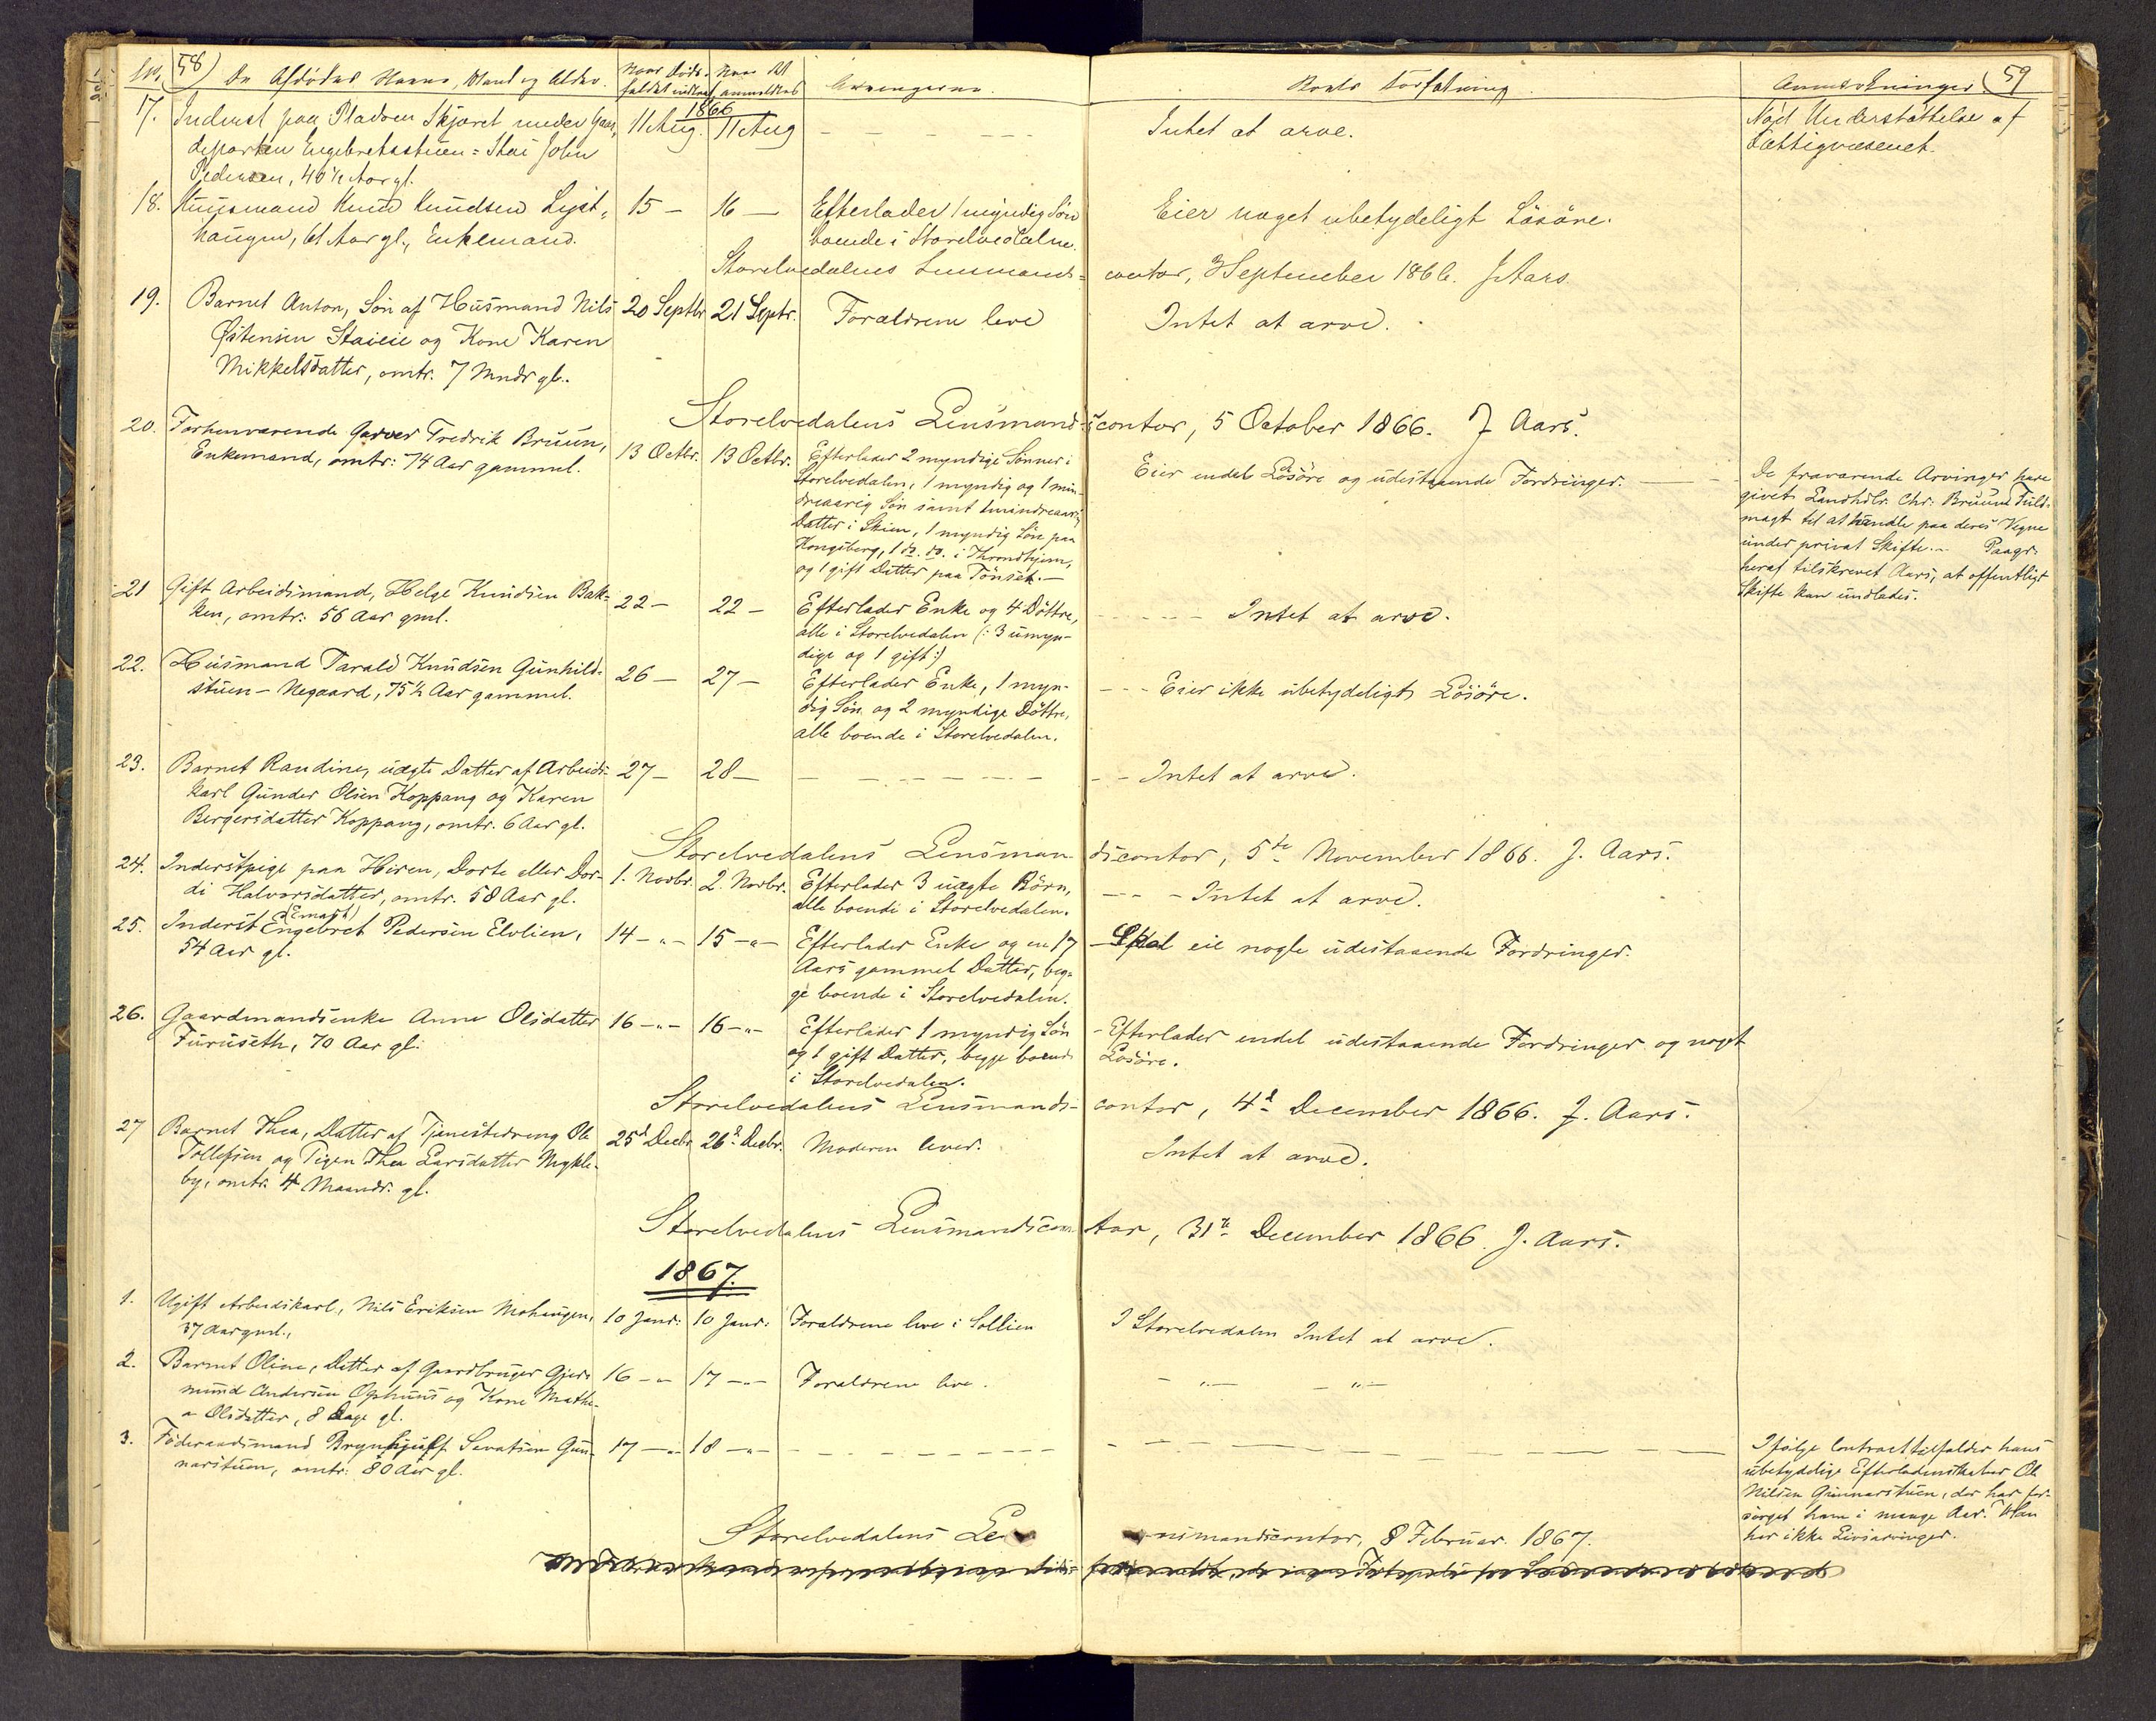 58) De Afdødes Navne, Stand og Alder. Naar Døds- Naar Arvingerne.
faldet indtraf anmeldtes
1866
17. Inderst paa Pladsen Skjæret under Gaar- 11 Aug. 11 Aug
departen Engebretsstuen = Stai John
Pedersen, 40½ Aar gl.
18. Huusmand Knud Knudsen Lyst- 15 – 16 – Efterlader 1 myndig Søn
haugen, 61 Aar gl., Enkemand. boende i Storelvedalen.
Storelvedalens Lensmands-
19. Barnet Anton, Søn af Husmand Nils 20 Septbr 21 Septr. Forældrene leve
Østensen Staieie og Kone Karen
Mikkelsdatter, omtr. 7 Mndr gl.
Storelvedalens Lensmand-
20. Forhenværende Garver Fredrik Bruun, 13 Octbr. 13 Octbr. Efterlader 2 myndige Sønner i
Enkemand, omtr: 74 Aar gammel. Storelvedalen, 1 myndig og 1 min-
dreaarig Søn samt 1 mindreaarig
Datter i Skien, 1 myndig Søn paa
Kongsberg, 1 do. do. i Throndhjem,
og 1 gift Datter paa Tönset. –
21 Gift Arbeidsmand, Helge Knudsen Bak- 22 – 22 – Efterlader Enke og 4 Döttre,
ken, omtr: 56 Aar gml. alle i Storelvedalen (: 3 umyn-
dige og 1 gift :)
22. Husmand Tarald Knudsen Gunhild- 26 – 27 – Efterlader Enke, 1 myn-
stuen – Negaard, 75½ Aar gammel. dig Søn og 2 myndige Döttre,
alle boende i Storelvedalen.
23. Barnet Randine, uægte Datter af Arbeids- 27 – 28 –
karl Gunder Olsen Koppang og Karen
Bergersdatter Koppang, omtr. 6 Aar gl.
Storelvedalens Lensman-
24. Inderstpige paa Hiren, Dorte eller Dor- 1. Novbr. 2. Novbr. Efterlader 3 uægte Börn,
di Halvorsdatter, omtr. 58 Aar gl. alle boende i Storelvedalen.
25. Inderst Engebret Pedersen Elvlien, 14 – " – 15 – " – Efterlader Enke og en 17
54 Aar gl. Aars gammel Datter, beg-
ge boende i Storelvedalen.
26. Gaardmandsenke Anne Olsdatter 16 – " – 16 – " – Efterlader 1 myndig Søn
Furuseth, 70 Aar gl: og 1 gift Datter, begge boende
i Storelvedalen.
Storelvedalens Lensmands-
27 Barnet Thea, Datter af Tjenestedreng Ole 25d Decbr 26d Decbr. Moderen lever.
Tollefsen og Pigen Thea Larsdatter Mykle-
by, omtr. 4 Maandr. gl.
Storelvedalens Lensmandscon-
1867.
1. Ugift Arbeidskarl, Nils Eriksen Mohaugen, 10 Janr: 10 Janr: Forældrene leve i Sollien
37 Aar gml.,
2. Barnet Oline, Datter af Gaardbruger Gjer- 16 – " 17 – " – Forældrene leve.
mund Andersen Ophuus og Kone Mathe-
a Olsdatter, 8 Dage gl.
3. Föderaadsmand Brynhjulf Sevatsen Gun- 17 – " 18 – " –
narstuen, omtr: 80 Aar gl.
Storelvedalens Le
Boets Forfatning. Anmærkninger. (59
Intet at arve. Nöd Understöttelse af
Fattigvæsenet.
Eier noget ubetydeligt Lösöre.
contor, 3 September 1866. J Aars
Intet at arve.
scontor, 5 October 1866. J Aars.
Eier endel Lösöre og udestaaende Fordringer. De fraværende Arvinger have
givet Landhdlr. Chr. Bruun Fuld-
magt til at handle paa deres Vegne
under privat Skifte. – Paagr.
heraf tilskrevet Aars, at offentligt
Skifte kan undlades.
Intet at arve.
Eier ikke ubetydeligt Lösöre.
Intet at arve.
dscontor, 5te November 1866. J. Aars.
Intet at arve.
Skal eie nogle udestaaende Fordringer.
Efterlader endel udestaaende Fordringer og noget
Lösöre.
contor, 4d December 1866. J. Aars.
Intet at arve.
tor, 31te December 1866. J. Aars.
I Storelvedalen Intet at arve.
– " – – " –
Ifølge Contract tilfalder hans
ubetydelige Efterladenskaber Ole
Nilsen Gunnarstuen, der har for-
sörget ham i mange Aar. Han
har ikke Livsarvinger.
nsmandscontor, 8 Februar 1867.